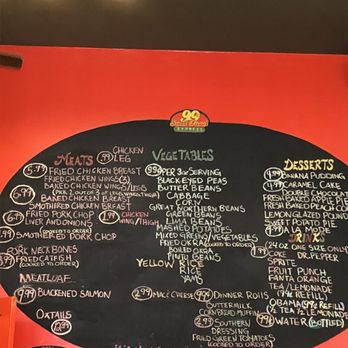 99
EXPRESS
MEATS
5.79 FRIED CHICKEN BREAST
FRIED CHICKEN WINGS (3)
BAKED CHICKEN WINGS/LEGS
BAKED CHICKEN BREAST
SMOTHERED CHICKEN BREAST
6.99 FRIED PORK CHOP
LIVER AND ONIONS
7.99 SMOTHERED PORK CHOP
PORK NECK BONES
FRIED CATFISH
(COOKED TO ORDER)
MEATLOAF
9.99 BLACKENED SALMON
OXTAILS
.99 CHICKEN
LEG
.99 CHICKEN
WING/THIGH
VEGETABLES
PER 3 OZ SERVING
BLACK EYED PEAS
BUTTER BEANS
CABBAGE
CORN
GREAT NORTHERN BEANS
GREEN BEAN
LIMA BEANS
MASHED POTATOES
MIXED GREENS/VEGETABLES
FRIED OKRA
BOILED OKRA
PINTO BEANS
YELLOW RICE
RICE
YAMS
2.99 MAC & CHEESE
.99 DINNER ROLLS
BUTTERMILK
CORNBREAD MUFFIN
2.99 SOUTHERN
DRESSING
FRIED GREEN TOMATOES
(COOKED TO ORDER)
DESSERTS
BANANA PUDDING
4.99 CARAMEL CAKE
DOUBLE CHOCOLATE
FRESH BAKED APPLE PIE
FRESH BAKED PEACH
LEMON GLAZED POUND
SWEET POTATO PIE
A LA MODE
DRINKS
(24 OZ ONE SIZE ONLY)
COKE DR. PEPPER
SPRITE
FRUIT PUNCH
FANTA ORANGE
TEA/LEMONADE
REFILL
OBAMA
1/2 TEA 1/2 LEMONADE
WATER (BOTTLED)